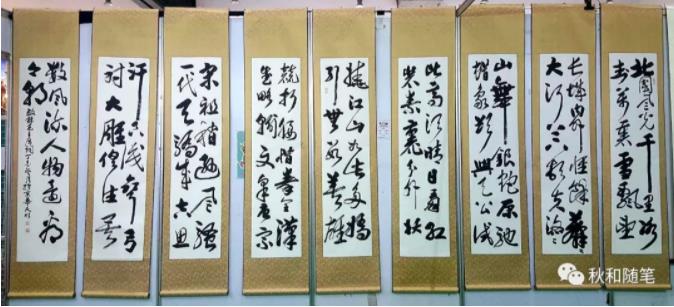 北國風光千里冰
封萬里雪飄望
长城内外惟餘莽莽
大河上下顿失滔滔
山舞銀蛇原驰
蜡象欲與天公试
比高须晴日看红
装素裹分外妖
娆江山如此多嬌
引無數英雄
競折腰惜秦皇漢
武略输文采唐宗
宋祖稍逊風騷
一代天驕成吉思
汗只识彎弓
射大雕俱往矣
數風流人物還看
今朝
秋和随笔